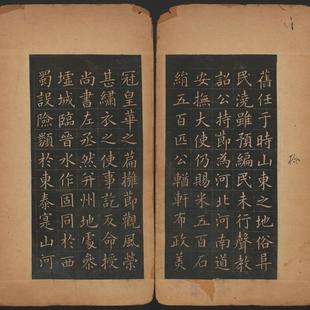 舊任于時山東之地俗阜
民澆雖預編民未行聲教
詔公持節為河北河南道
安撫大使仍賜米五百石
絹五百匹公輶軒布政美
冠皇華之篇擁節觀風榮
甚繡衣之使事訖反命授
尚書左丞然并州地處參
墟城臨晉水作固同於西
蜀設險類於東秦寔山河